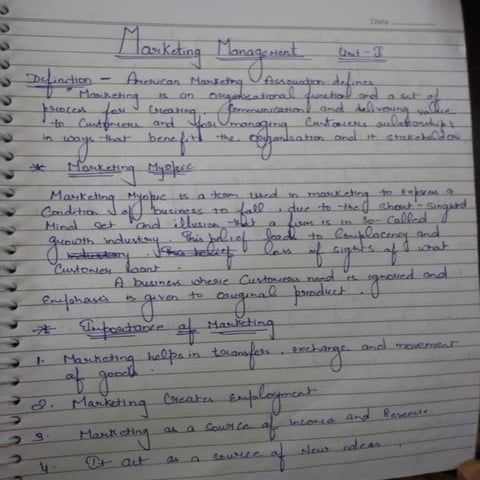 Date
Marketing Management Unit - I
Definition - American Marketing Association defines
"Marketing is an organisational function and a set of
process for creating, communication and delivering value
to Customers and for managing Customers relationships
in ways that benefit the organisation and it stakeholders
* Marketing Myopic
Marketing Myopic is a term used in marketing to express a
Condition of business to fall, due to the short-sighted
Mind set and illusion that a firm is in so-called
growth industry. This belief lead to Complacency and
industry. This belief loss of sights of what
Customer want.
A business where Customers need is ignored and
Emphasis is given to original product.
* Importance of Marketing
1. Marketing helps in transfer, exchange and movement
of goods.
2. Marketing Creates Employment
3. Marketing as a source of income and Revenue
4. It act as a source of New ideas.